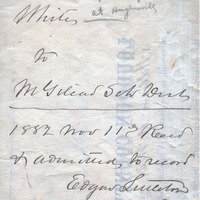 White at Hughsville
to
Mt Gilead Sch Dist
1882 Nov 11th Recd
& admitted to record
Edgar